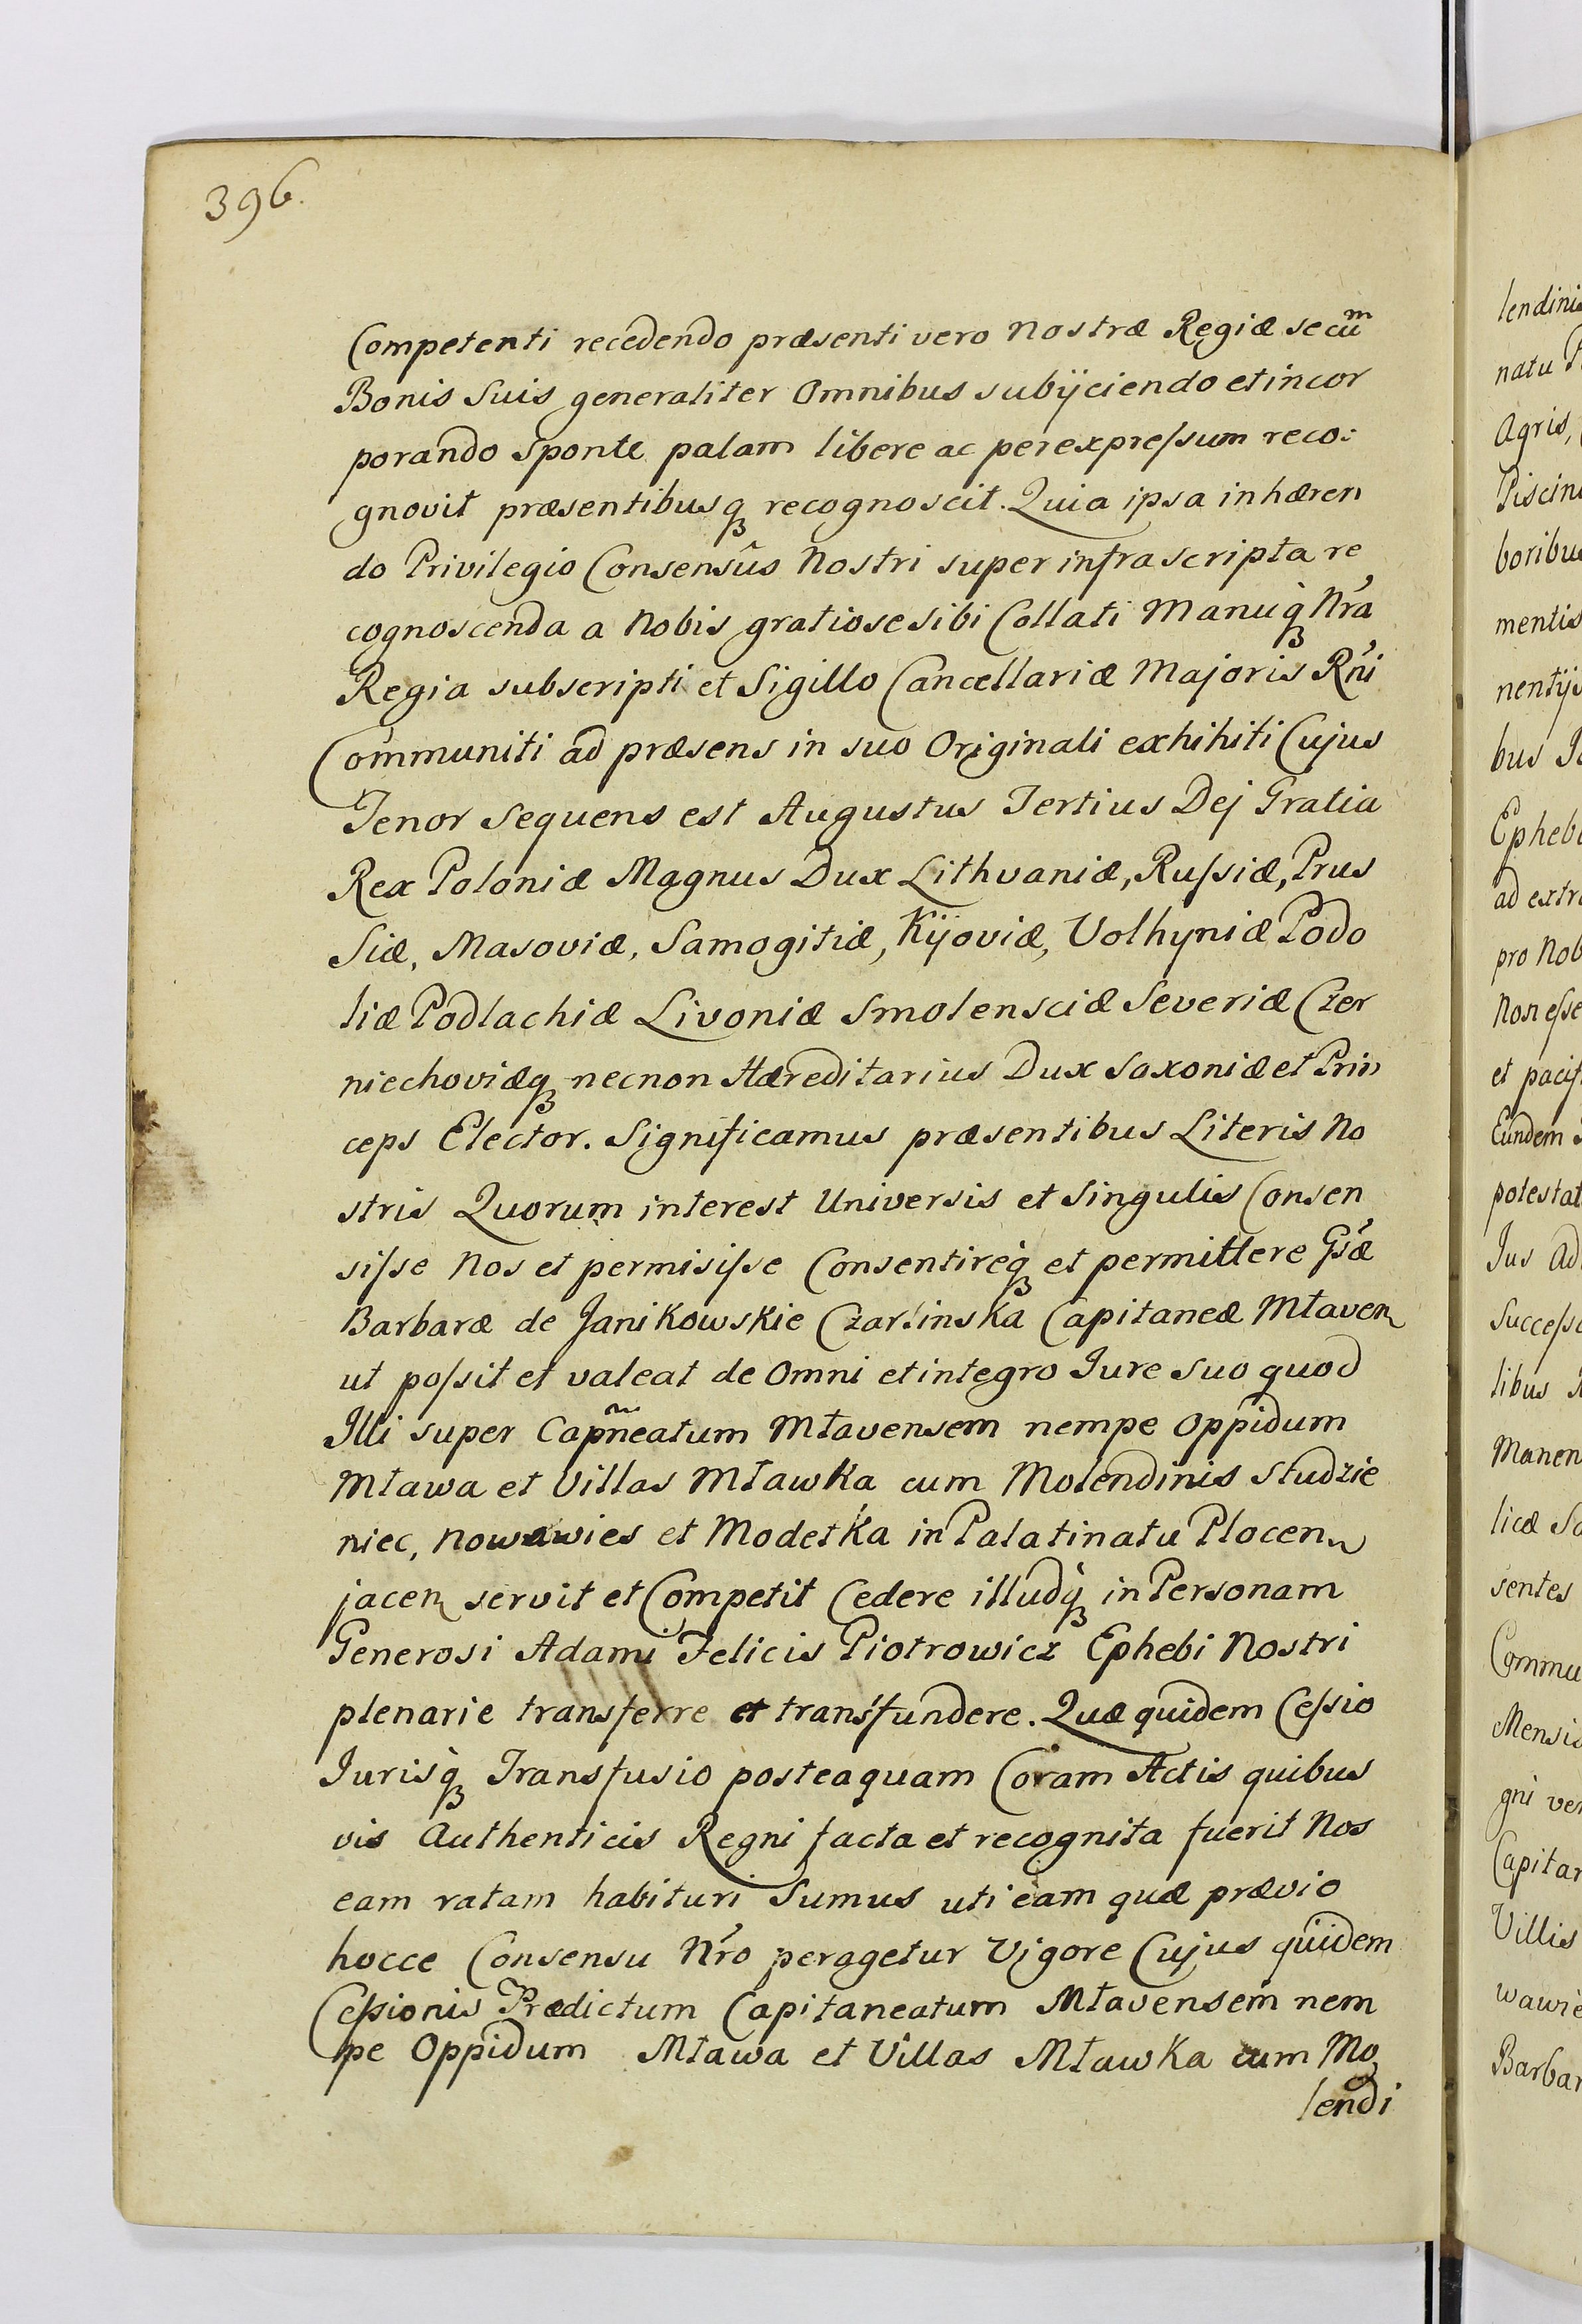 396.
Competenti recedendo præsenti vero Nostræ Regiæ secum
Bonis Suis generaliter Omnibus subijciendo et incor
porando Sponte palam libere ac per expreſsum reco:
gnovit præsentibusq recognoscit. Quia ipsa inhæren
do Privilegio Consensûs Nostri super infrascripta re
cognoscenda a Nobis gratiose sibi Collati Manuq Nra
Regia subscripti et Sigillo Cancellariæ Majoris Rni
Communiti ad præsens in suo Originali exhihiti Cujus
Tenor Sequens est Augustus Tertius Dej Gratia
Rex Poloniæ Magnus Dux Lithvaniæ, Ruſsiæ, Prus
Siæ, Masoviæ, Samogitiæ, Kijoviæ, Volhyniæ Podo
liæ Podlachiæ Livoniæ Smolensciæ Severiæ Czer
niechoviæq necnon Hæreditarius Dux Saxoniæ et Prin
ceps Elector. Significamus præsentibus Literis No
stris Quorum interest Universis et Singulis Consen
siſse Nos et permisiſse Consentireq et permittere Gsæ
Barbaræ de Janikowskie Czarlinska Capitaneæ Mławen
ut poſsit et valeat de Omni et integro Jure Suo quod
Illi super Capneatum Mławensem nempe Oppidum
Mława et Villas Mławka cum Molendinis Studzie
niec, Nowawies et Modełka in Palatinatu Plocen
jacen servit et Competit Cedere illudq in Personam
Generosi Adami Felicis Piotrowicz Ephebi Nostri
plenarie transferre et transfundere. Quæ quidem Ceſsio
Jurisq Transfusio posteaquam Coram Actis quibus
vis Authenticis Regni facta et recognita fuerit Nos
eam ratam habituri Sumus uti eam quæ prævio
hocce Consensu Nro peragetur Vigore Cujus quidem
Ceſsionis Prædictum Capitaneatum Mławensem nem
pe Oppidum Mława et Villas Mławka cum Mo
lendi
lendini
natu
Agris,
Piscin
boribu
mentis
nentij
bus
Epheb
ad extr
pro Nob
Non eſse
et pacif
Eundem
potestat
Jus Ad
Succeſs
libus
Manen
licæ
sentes
Commu
Mensis
gni ver
Capitan
Villis
wawie
Barbar